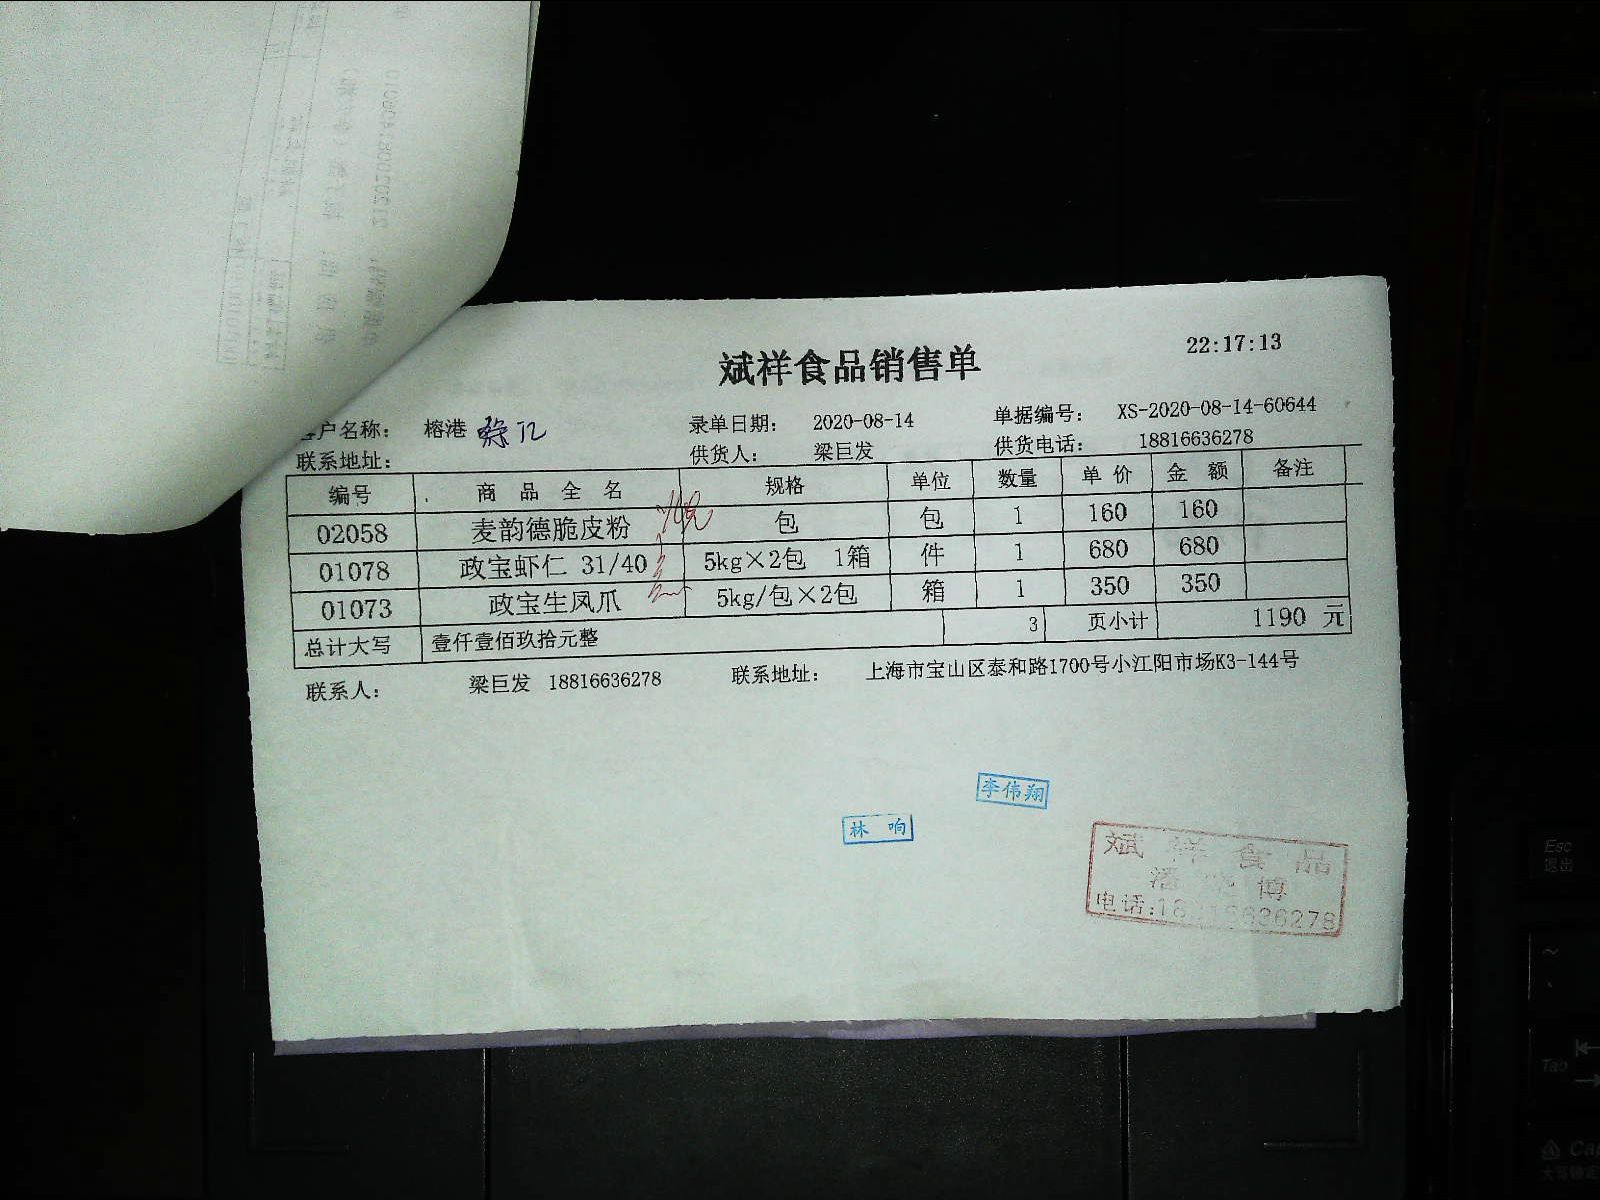 22:17:13
斌祥食品销售单
客户名称: 榕港 录单日期: 2020-08-14 单据编号: XS-2020-08-14-60644
联系地址: 供货人: 梁巨发 供货电话: 18816636278
编号 商品全名 规格 单位 数量 单价 金额 备注
02058 麦韵德脆皮粉 包 包 1 160 160
01078 政宝虾仁 31/40 5kg×2包 1箱 件 1 680 680
01073 政宝生凤爪 5kg/包×2包 箱 1 350 350
总计大写 壹仟壹佰玖拾元整 3 页小计 1190 元
联系人: 梁巨发 18816636278 联系地址: 上海市宝山区泰和路1700号小江阳市场K3-144号
李伟翔
林响
斌祥食品
电话:18816636278
Esc
退出
Tab